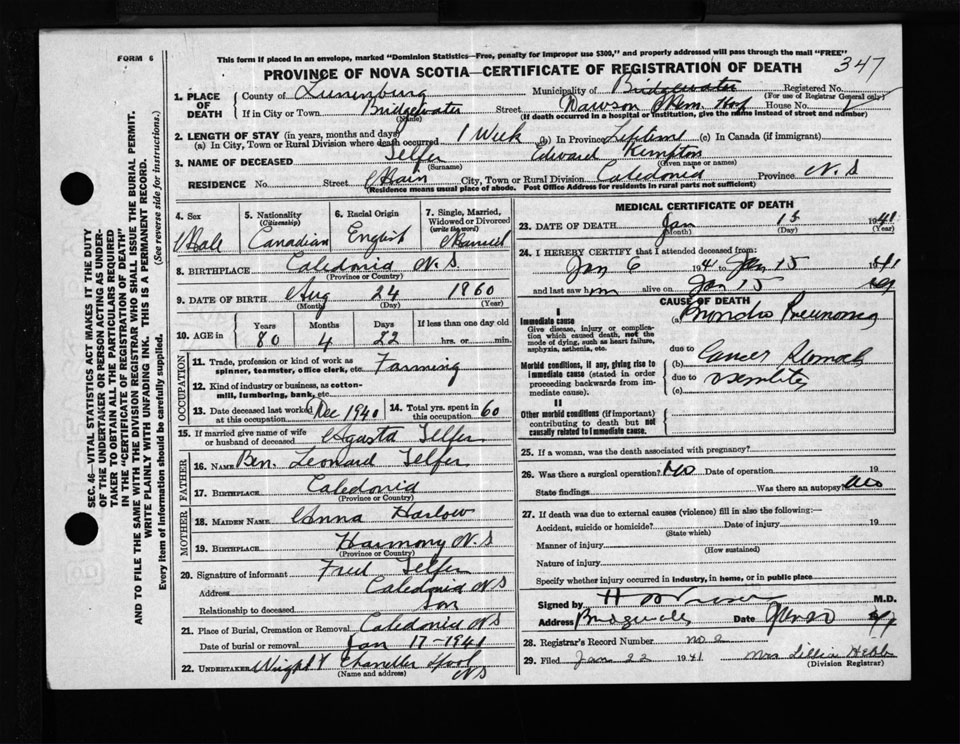 FORM 6
This form if placed in an envelope, marked "Dominion Statistics—Free, penalty for improper use $300," and properly addressed will pass through the mail "FREE"
PROVINCE OF NOVA SCOTIA—CERTIFICATE OF REGISTRATION OF DEATH
347
1. PLACE OF DEATH
County of Lunenburg Municipality of Bridgewater Registered No.
(For use of Registrar General only)
If in City or Town Bridgewater Street Dawson Mem. Hosp House No.
(Name) (If death occurred in a hospital or institution, give the name instead of street and number)
2. LENGTH OF STAY (in years, months and days)
(a) In City, Town or Rural Division where death occurred 1 Week (b) In Province Lifetime (c) In Canada (if immigrant)
3. NAME OF DECEASED Telfer Edward Kempton
(Surname) (Given name or names)
RESIDENCE No. Street Main City, Town or Rural Division Caledonia Province N.S
(Residence means usual place of abode. Post Office Address for residents in rural parts not sufficient)
4. Sex Male
5. Nationality (Citizenship) Canadian
6. Racial Origin English
7. Single, Married, Widowed or Divorced (write the word) Married
8. BIRTHPLACE Caledonia N.S
(Province or Country)
9. DATE OF BIRTH Aug 24 1860
(Month) (Day) (Year)
10. AGE in Years 80 Months 4 Days 22 If less than one day old hrs. or min.
OCCUPATION
11. Trade, profession or kind of work as spinner, teamster, office clerk, etc. Farming
12. Kind of industry or business, as cotton-mill, lumbering, bank, etc.
13. Date deceased last worked at this occupation Dec 1940
14. Total yrs. spent in this occupation 60
15. If married give name of wife or husband of deceased Agasta Telfer
FATHER
16. NAME Ben. Leonard Telfer
17. BIRTHPLACE Caledonia
(Province or Country)
MOTHER
18. MAIDEN NAME Anna Harlow
19. BIRTHPLACE Harmony N.S
(Province or Country)
20. Signature of informant Fred Telfer
Address Caledonia N.S
Relationship to deceased Son
21. Place of Burial, Cremation or Removal Caledonia N.S
Date of burial or removal Jan 17-1941
22. UNDERTAKER Wright Chandler
N.S
(Name and address)
MEDICAL CERTIFICATE OF DEATH
23. DATE OF DEATH Jan 15 1941
(Month) (Day) (Year)
24. I HEREBY CERTIFY that I attended deceased from:
Jan 6 1941 to Jan 15 1941
and last saw him alive on Jan 15
CAUSE OF DEATH
I
Immediate cause
Give disease, injury or complication which caused death, not the mode of dying, such as heart failure, asphyxia, asthenia, etc.
(a) Broncho Pneumonia
due to
Morbid conditions, if any, giving rise to immediate cause (stated in order proceeding backwards from immediate cause).
(b) Cancer Stomach
due to senility
(c)
II
Other morbid conditions (if important) contributing to death but not causally related to immediate cause.
25. If a woman, was the death associated with pregnancy?
26. Was there a surgical operation? No Date of operation 19
State findings Was there an autopsy? No
27. If death was due to external causes (violence) fill in also the following:—
Accident, suicide or homicide? Date of injury 19
(State which)
Manner of injury
(How sustained)
Nature of injury
Specify whether injury occurred in industry, in home, or in public place
Signed by M.D.
Address Bridgewater Date
28. Registrar's Record Number no 2
29. Filed Jan 22 1941 Mrs Lillian Hebb
(Division Registrar)
SEC. 46—VITAL STATISTICS ACT MAKES IT THE DUTY
OF THE UNDERTAKER OR PERSON ACTING AS UNDER-
TAKER TO OBTAIN ALL THE PARTICULARS REQUIRED
IN THE "CERTIFICATE OF REGISTRATION OF DEATH"
AND TO FILE THE SAME WITH THE DIVISION REGISTRAR WHO SHALL ISSUE THE BURIAL PERMIT.
WRITE PLAINLY WITH UNFADING INK. THIS IS A PERMANENT RECORD.
Every item of information should be carefully supplied. (See reverse side for instructions.)